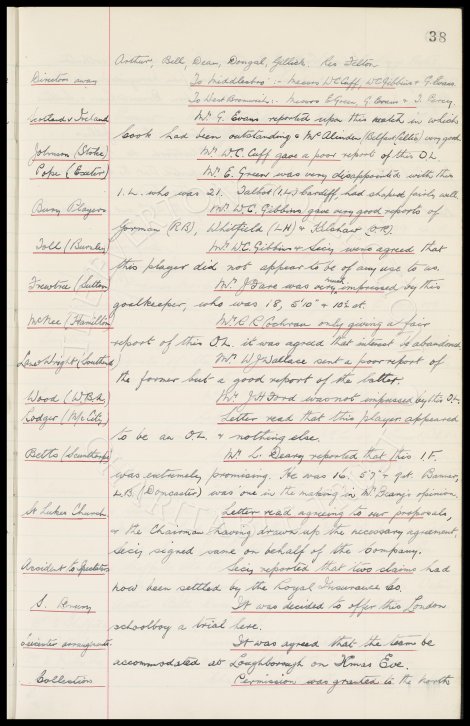 38
Arthur, Bell, Dean, Dougal, Gillick. Res Felton
Directors away To Middlesbro' :- Messrs W.C. Cuff, W.C. Gibbins & G. Evans.
To West Bromwich :- Messrs E. Green, G. Evans & T. Percy
Scotland v Ireland Mr. G. Evans reported upon this match in which
Cook had been outstanding & McAlinden (Belfast Celtic) very good.
Johnson (Stoke) Mr. W.C. Cuff gave a poor report of this O.L.
Pope (Exeter) Mr. E. Green was very disappointed with this
I.L. who was 21. Talbot (I.L.) Cardiff, had shaped fairly well.
Bury Players Mr. W.C. Gibbins gave very good reports of
Gorman (R.B), Whitfield (L.H) & Kilshaw (O.R).
Toll (Burnley) Mr. W.C. Gibbins & Secy were agreed that
this player did not appear to be of any use to us.
(Sutton Mr. J. Fare was very much impressed by this
goalkeeper, who was 18, 5'10" & 10½ st.
McNee (Hamilton Mr. R R Cochran only giving a fair
report of this O.L. it was agreed that interest be abandoned
Lane & Wright (Southend Mr. W J Wallace sent a poor report of
the former but a good report of the latter.
Wood (W.B.A. Mr. J.H. Ford was not impressed by this O.L.
Rodger (M/c City Letter read that this player appeared
to be an O.L. & nothing else.
Betts (Scunthorpe Mr. L. Deary reported that this I F.
was extremely promising. He was 16. 5'7" & 9st.
L.B. (Doncaster) was one in the making in Mr. opinion.
St Lukes Church Letter read agreeing to our proposals,
& the Chairman having drawn up the necessary agreement,
Secy signed same on behalf of the Company.
Accident to Spectators Secy reported that two claims had
now been settled by the Royal Insurance Co.
S. Drury It was decided to offer this London
schoolboy a trial here.
Leicester arrangements It was agreed that the team be
accommodated at Loughborough on Xmas Eve.
Collection Permission was granted to the North